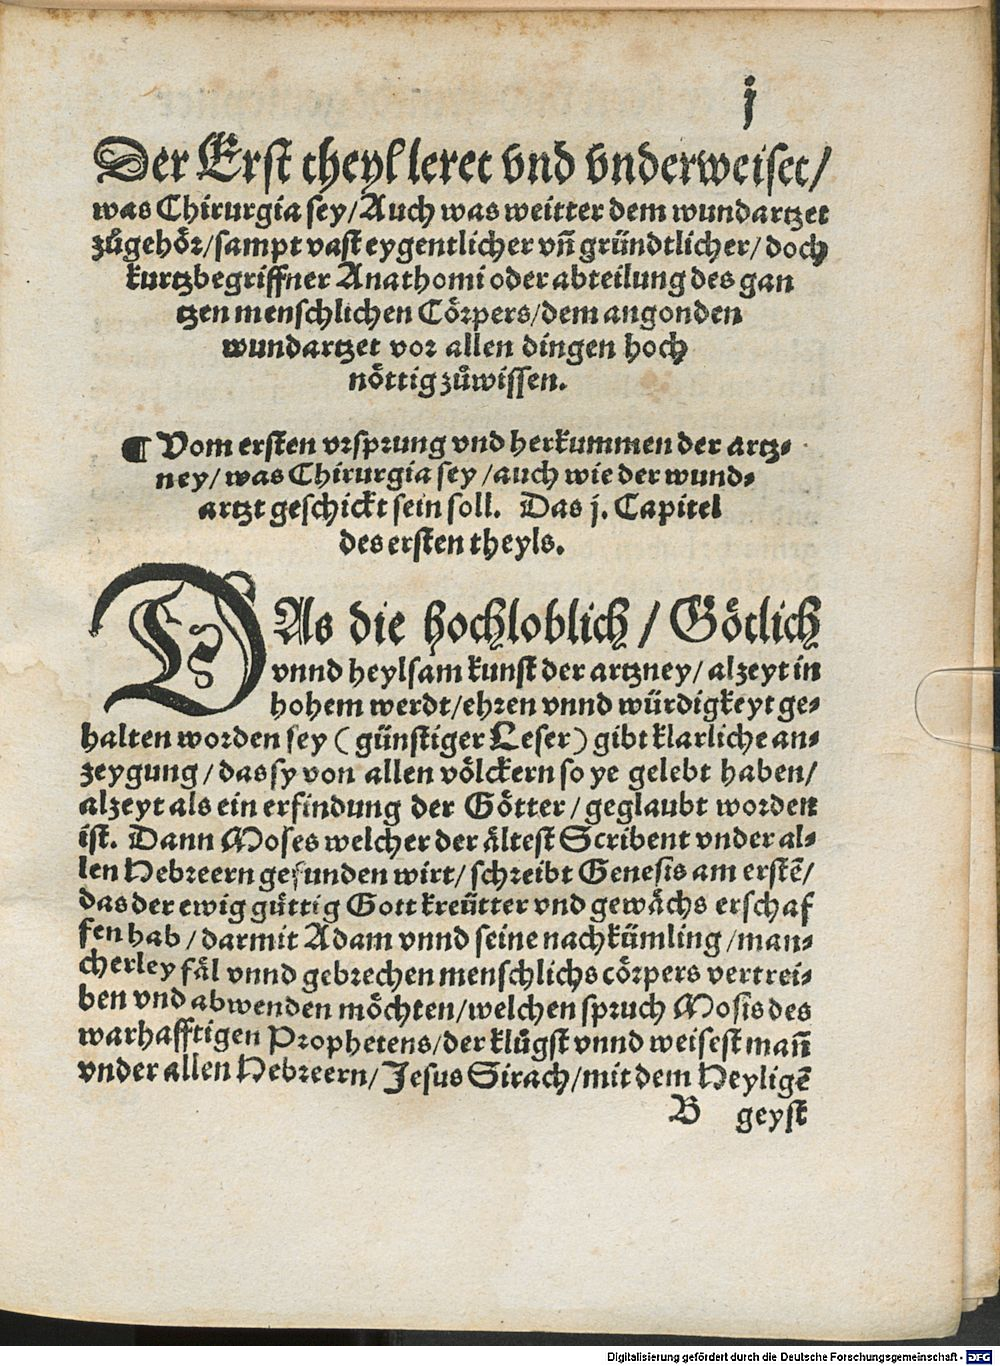 j
Der Erst theyl leret vnd vnderweiset/
was Chirurgia sey/Auch was weitter dem wundartzet
zůgehör/sampt vast eygentlicher vñ gründtlicher/doch
kurtzbegriffner Anathomi oder abteilung des gan
tzen menschlichen Cörpers/dem angonden
wundartzet vor allen dingen hoch
nöttig zůwissen.
¶ Vom ersten vrsprung vnd herkummen der artz⸗
ney/was Chirurgia sey/auch wie der wund⸗
artzt geschickt sein soll. Das j. Capitel
des ersten theyls.
DAs die hochloblich/Götlich
vnnd heylsam kunst der artzney/alzeyt in
hohem werdt/ehren vnnd würdigkeyt ge⸗
halten worden sey (günstiger Leser) gibt klarliche an⸗
zeygung/das sy von allen völckern so ye gelebt haben/
alzeyt als ein erfindung der Götter/geglaubt worden
ist. Dann Moses welcher der ältest Scribent vnder al⸗
len Hebreern gefunden wirt/schreibt Genesis am erstẽ/
das der ewig güttig Gott kreütter vnd gewächs erschaf
fen hab/darmit Adam vnnd seine nachkümling/man⸗
cherley fäl vnnd gebrechen menschlichs cörpers vertrei⸗
ben vnd abwenden möchten/welchen spruch Mosis des
warhafftigen Prophetens/der klügst vnnd weisest mañ
vnder allen Hebreern/Jesus Sirach/mit dem Heyligẽ
B geyst
Digitalisierung gefördert durch die Deutsche Forschungsgemeinschaft - DFG